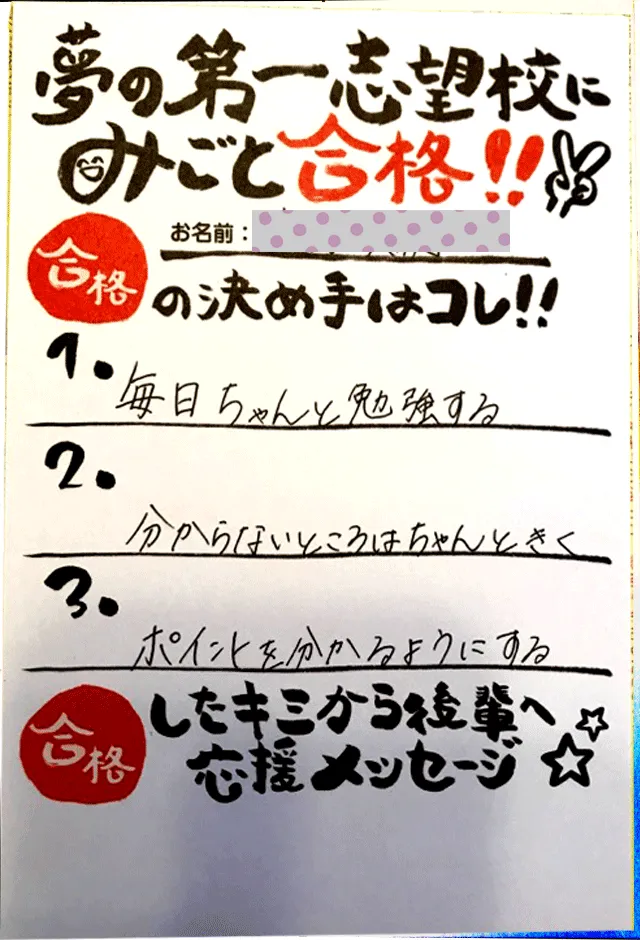 夢の第一志望校に
みごと合格!!
お名前：
合格
の決め手はコレ!!
1.
毎日ちゃんと勉強する
2.
分からないところはちゃんときく
3.
ポイントを分かるようにする
合格
したキミから後輩へ
応援メッセージ